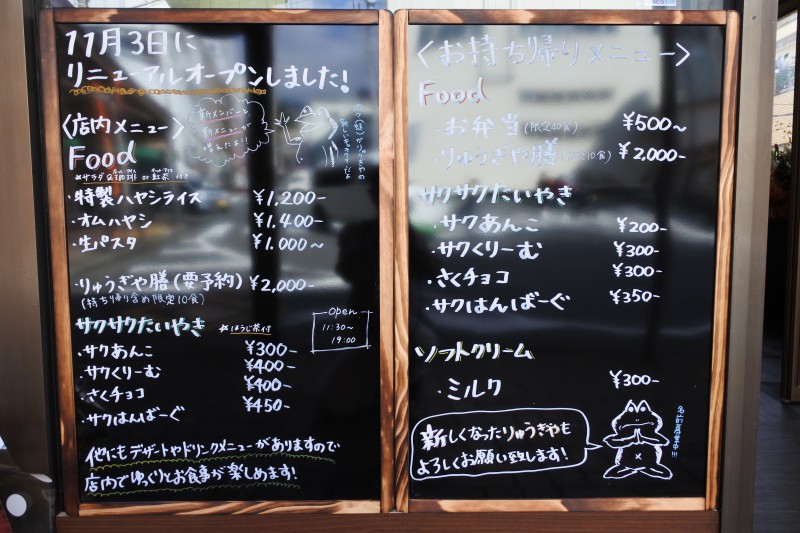 11月3日に
リニューアルオープンしました!
〈店内メニュー〉
新メンバーと
新メニューが
増えたよ!!
Food
*サラダ&珈琲 or 紅茶 付き
・特製ハヤシライス ¥1,200-
・オムハヤシ ¥1,400-
・生パスタ ¥1,000~
・りゅうぎや膳(要予約) ¥2,000-
(持ち帰り含め限定10食)
サクサクたいやき *ほうじ茶付
Open
11:30~
19:00
・サクあんこ ¥300-
・サクくりーむ ¥400-
・さくチョコ ¥400-
・サクはんばーぐ ¥450-
他にもデザートやドリンクメニューがありますので
店内でゆっくりとお食事が楽しめます!
〈お持ち帰りメニュー〉
Food
・お弁当 ¥500~
・りゅうぎや膳 ¥2,000-
サクサクたいやき
・サクあんこ ¥200-
・サクくりーむ ¥300-
・さくチョコ ¥300-
・サクはんばーぐ ¥350-
ソフトクリーム
・ミルク ¥300-
新しくなったりゅうぎやも
よろしくお願い致します!
名前募集中!!!